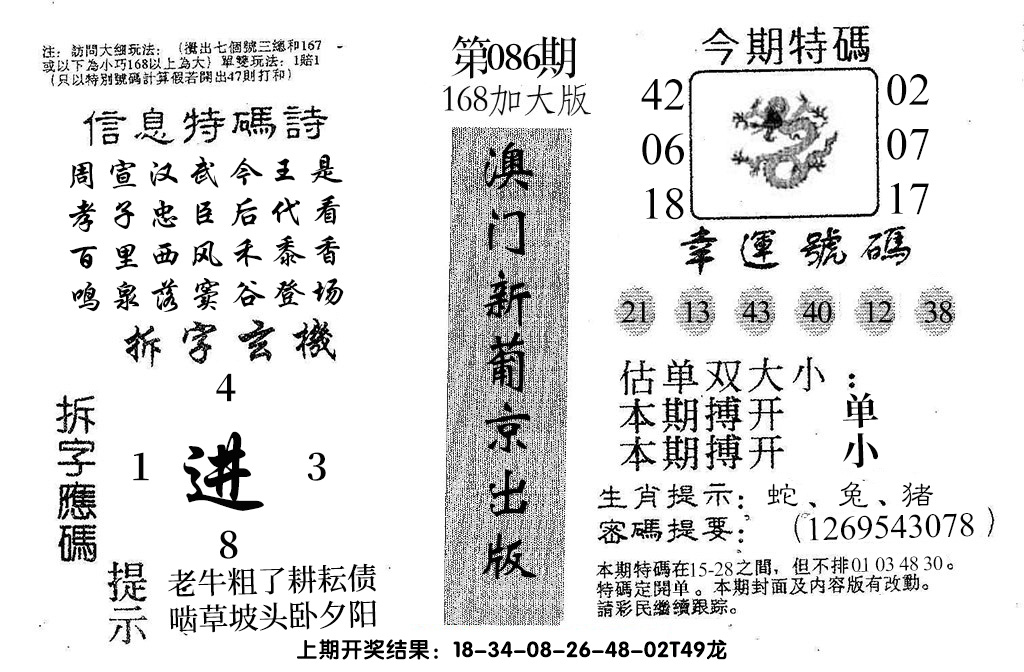 注：訪問大细玩法：（攪出七個號三總和167
或以下為小巧168以上為大）單雙玩法：1賠1
（只以特別號碼計算假若開出47則打和）
信息特碼詩
周宣汉武今王是
孝子忠臣后代看
百里西风禾黍香
鸣泉落窦谷登场
拆字玄機
4
拆字應碼
1 进 3
8
提示
老牛粗了耕耘债
啮草坡头卧夕阳
第086期
168加大版
澳门新葡京出版
今期特碼
42 02
06 07
18 17
幸運號碼
21 13 43 40 12 38
估单双大小：
本期搏开 单
本期搏开 小
生肖提示：蛇、兔、猪
密碼提要：（1269543078）
本期特碼在15-28之間，但不排01 03 48 30。
特碼定開单。本期封面及内容版有改動。
請彩民繼續跟踪。
上期开奖结果：18-34-08-26-48-02T49龙